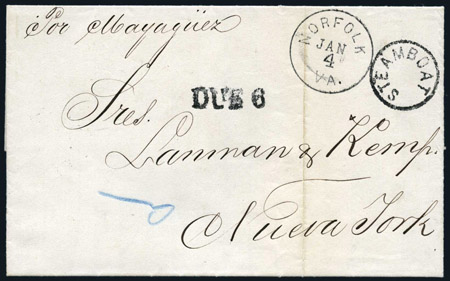 Por Mayagüez
NORFOLK
JAN
4
VA.
STEAMBOAT
DUE 6
Sres.
Lanman & Kemp.
Nueva York